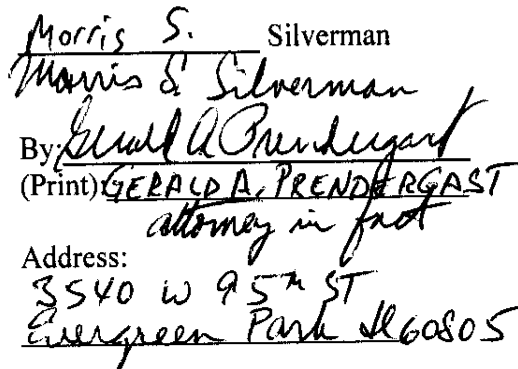 Morris S. Silverman
Morris S. Silverman
By: Gerald A Prendergast
(Print) GERALD A. PRENDERGAST
attorney in fact
Address:
3540 W 95th ST
Evergreen Park Il 60805